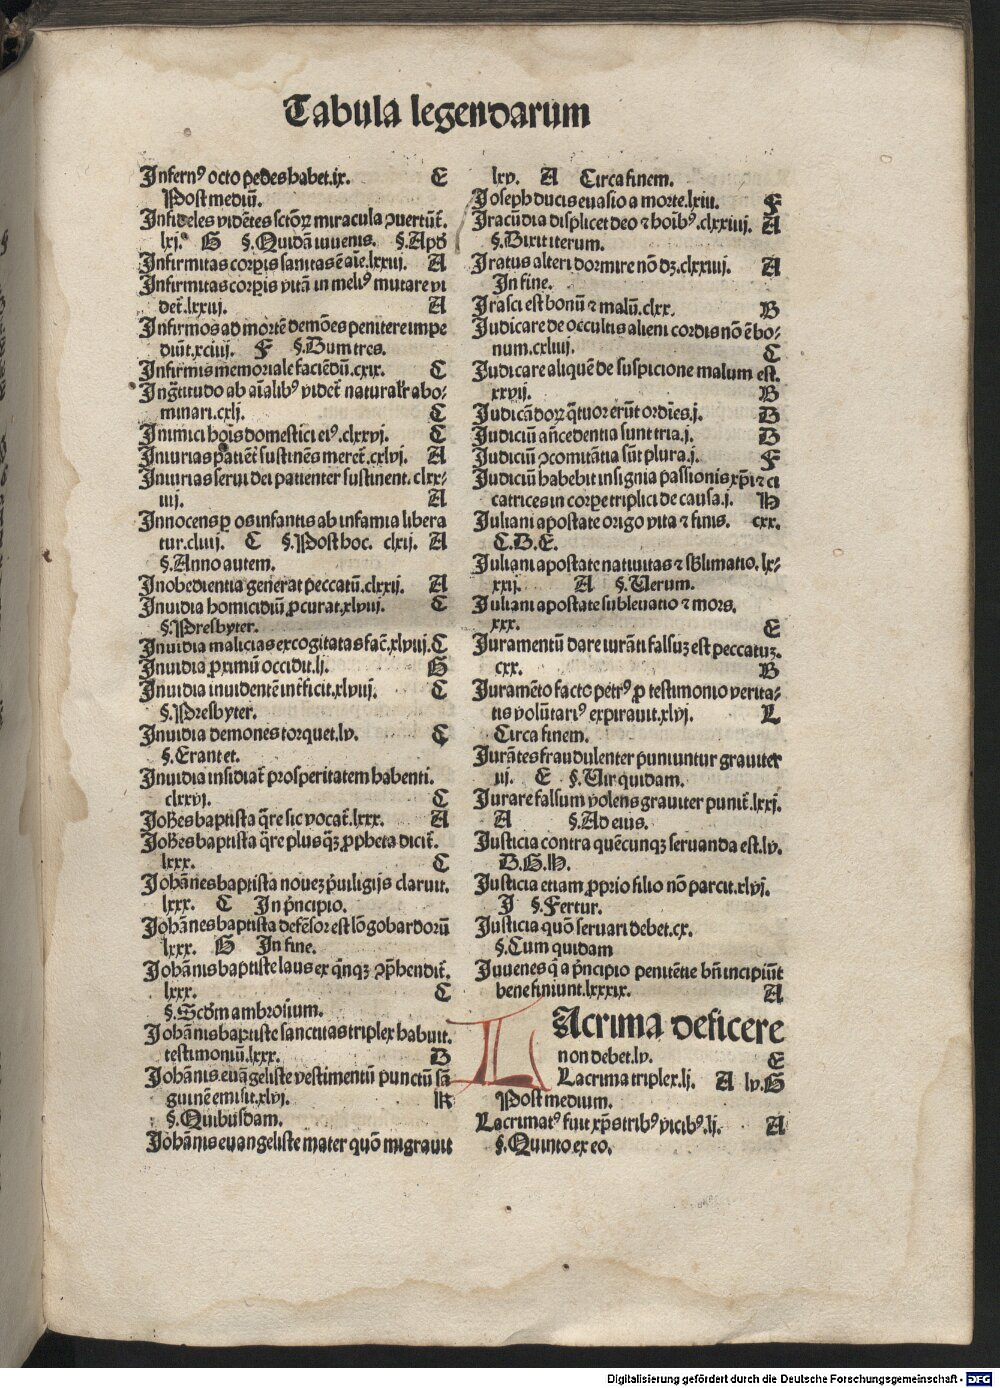 Tabula legendarum
Infernꝰ octo pedes habet.ix. E
Post mediū.
Infideles vidētes sctōꝝ miracula ꝯuertūt̄.
lxj. G §.Quidā iuuenis. §.Apd
Infirmitas corꝑis sanitas ē aīe.lxxiij. A
Infirmitas corꝑis vitā in meliꝰ mutare vi
det̄.lxxiij. A
Infirmos ad mortē demōes penitere impe
diūt.xciiij. F §.Dum tres.
Infirmis memoriale faciēdū.cxix. C
Ingr̄titudo ab aīalibꝰ videt̄ naturalr̄ abo⸗
minari.cxlj. C
Inimici hoīs domestici eiꝰ.clxxvj. C
Iniurias patiēt̄ sustinēs meret̄.cxlvj. A
Iniurias serui dei patienter sustinent. clxx⸗
iij. A
Innocens ꝑ os infantis ab infamia libera
tur.cliij. C §.Post hoc. clxij. A
§.Anno autem.
Inobedientia generat peccatū.clxxij. A
Inuidia homicidiū ꝓcurat.xlviij. C
§.Presbyter.
Inuidia malicias excogitatas fac̄.xlviij.C
Inuidia proximū occidit.lj. G
Inuidia inuidentē int̄ficit.xlviij. C
§.Presbyter.
Inuidia demones torquet.lv. C
§.Erant et.
Inuidia insidiat̄ prosperitatem habenti.
clxxvj. C
Joħes baptista q̄re sic vocat̄.lxxx. A
Joħes baptista q̄re plusqꝫ ꝓpheta dicit̄.
lxxx. C
Johānes baptista noueꝫ p̄uilegijs claruit.
lxxx. C In p̄ncipio.
Johānes baptista defēsor est lōgobardorū
lxxx. G In fine.
Johānis baptiste laus ex qͥnqꝫ ꝯp̄hendit̄.
lxxx. C
§.Scd̄m ambrosium.
Johānis baptiste sanctitas triplex habuit.
testimoniū.lxxx. B
Johānis.euāgeliste vestimentū punctū sā
guinē emisit.xlvj. K
§.Quibusdam.
Johānis euangeliste mater quō migrauit
lxv. A Circa finem.
Joseph ducis euasio a morte.lxiii. F
Iracūdia displicet deo ⁊ hoībꝰ.clxxiiij. A
§.Dixit iterum.
Iratus alteri dormire nō dꝫ.clxxiiij. A
In fine.
Irasci est bonū ⁊ malū.clxx. B
Iudicare de occultis alieni cordis nō ē bo⸗
num.cxliiij. C
Iudicare aliquē de suspicione malum est.
xxvij. B
Iudicādoꝝ q̄tuor erūt ordīes.j. D
Iudiciū añcedentia sunt tria.j. D
Iudiciū ꝯcomitātia sūt plura.j. F
Iudiciū habebit insignia passionis xp̄i ⁊ ci
catrices in corꝑe triplici de causa.j. H
Iuliani apostate origo vita ⁊ finis. cxx.
C.D.E.
Iuliani apostate natiuitas ⁊ sb̄limatio. lx⸗
xxij. A §.Uerum.
Iuliani apostate subleuatio ⁊ mors.
xxx. E
Iuramentū dare iurāti falsuꝫ est peccatuꝫ.
cxx. B
Iuramēto facto petrꝰ ꝓ testimonio verita⸗
tis volūtariꝰ expirauit.xlvj. L
Circa finem.
Iurātes fraudulenter puniuntur grauiter
iij. E §.Uir quidam.
Iurare falsum volens grauiter punit̄.lxxj.
A §.Ad eius.
Iusticia contra quēcunqꝫ seruanda est.lv.
D.G.H.
Iusticia etiam proprio filio nō parcit.xlvj.
J §.Fertur.
Iusticia quō seruari debet.cx.
§.Cum quidam
Iuuenes qͥ a p̄ncipio penitētie bn̄ incipiūt
bene finiunt.lxxxix. A
LAcrima deficere
non debet.lv. E
Lacrima triplex.lj. A lv.G
Post medium.
Lacrimatꝰ fuit xp̄s tribꝰ vicibꝰ.lj. A
§.Quinto ex eo.
Digitalisierung gefördert durch die Deutsche Forschungsgemeinschaft - DFG